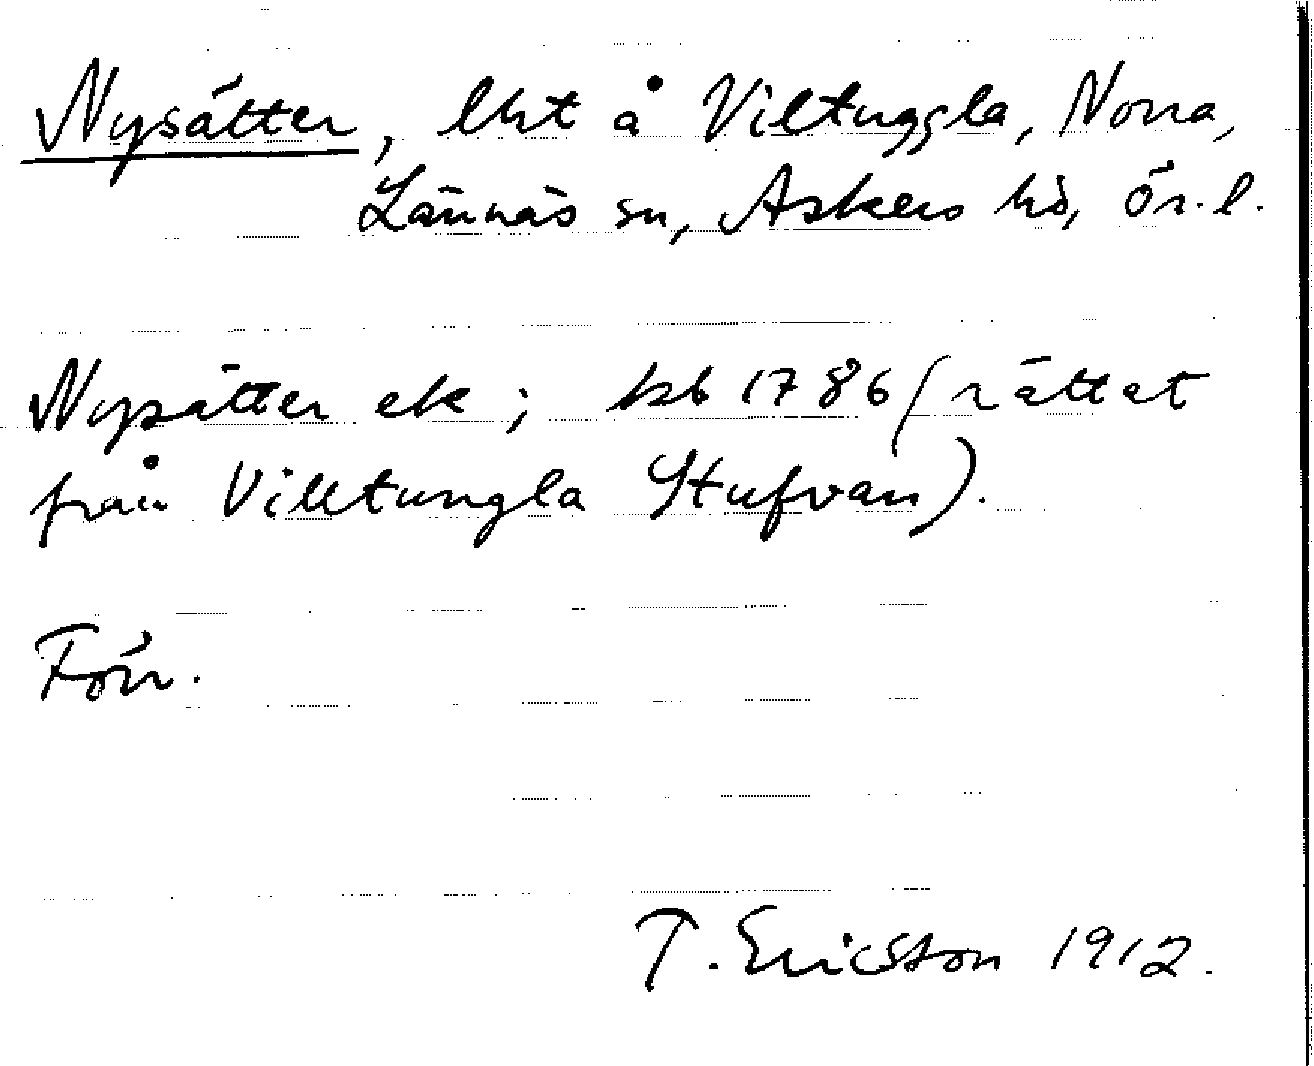 Nysätter, lht å Viltuggla, Norra,
Lännäs sn, Askers hd, Ör. l.
Nysätter ek; hfb 1786 (rättat
från Villtungla Stufvan).
Förr.
T. Ericsson 1912.